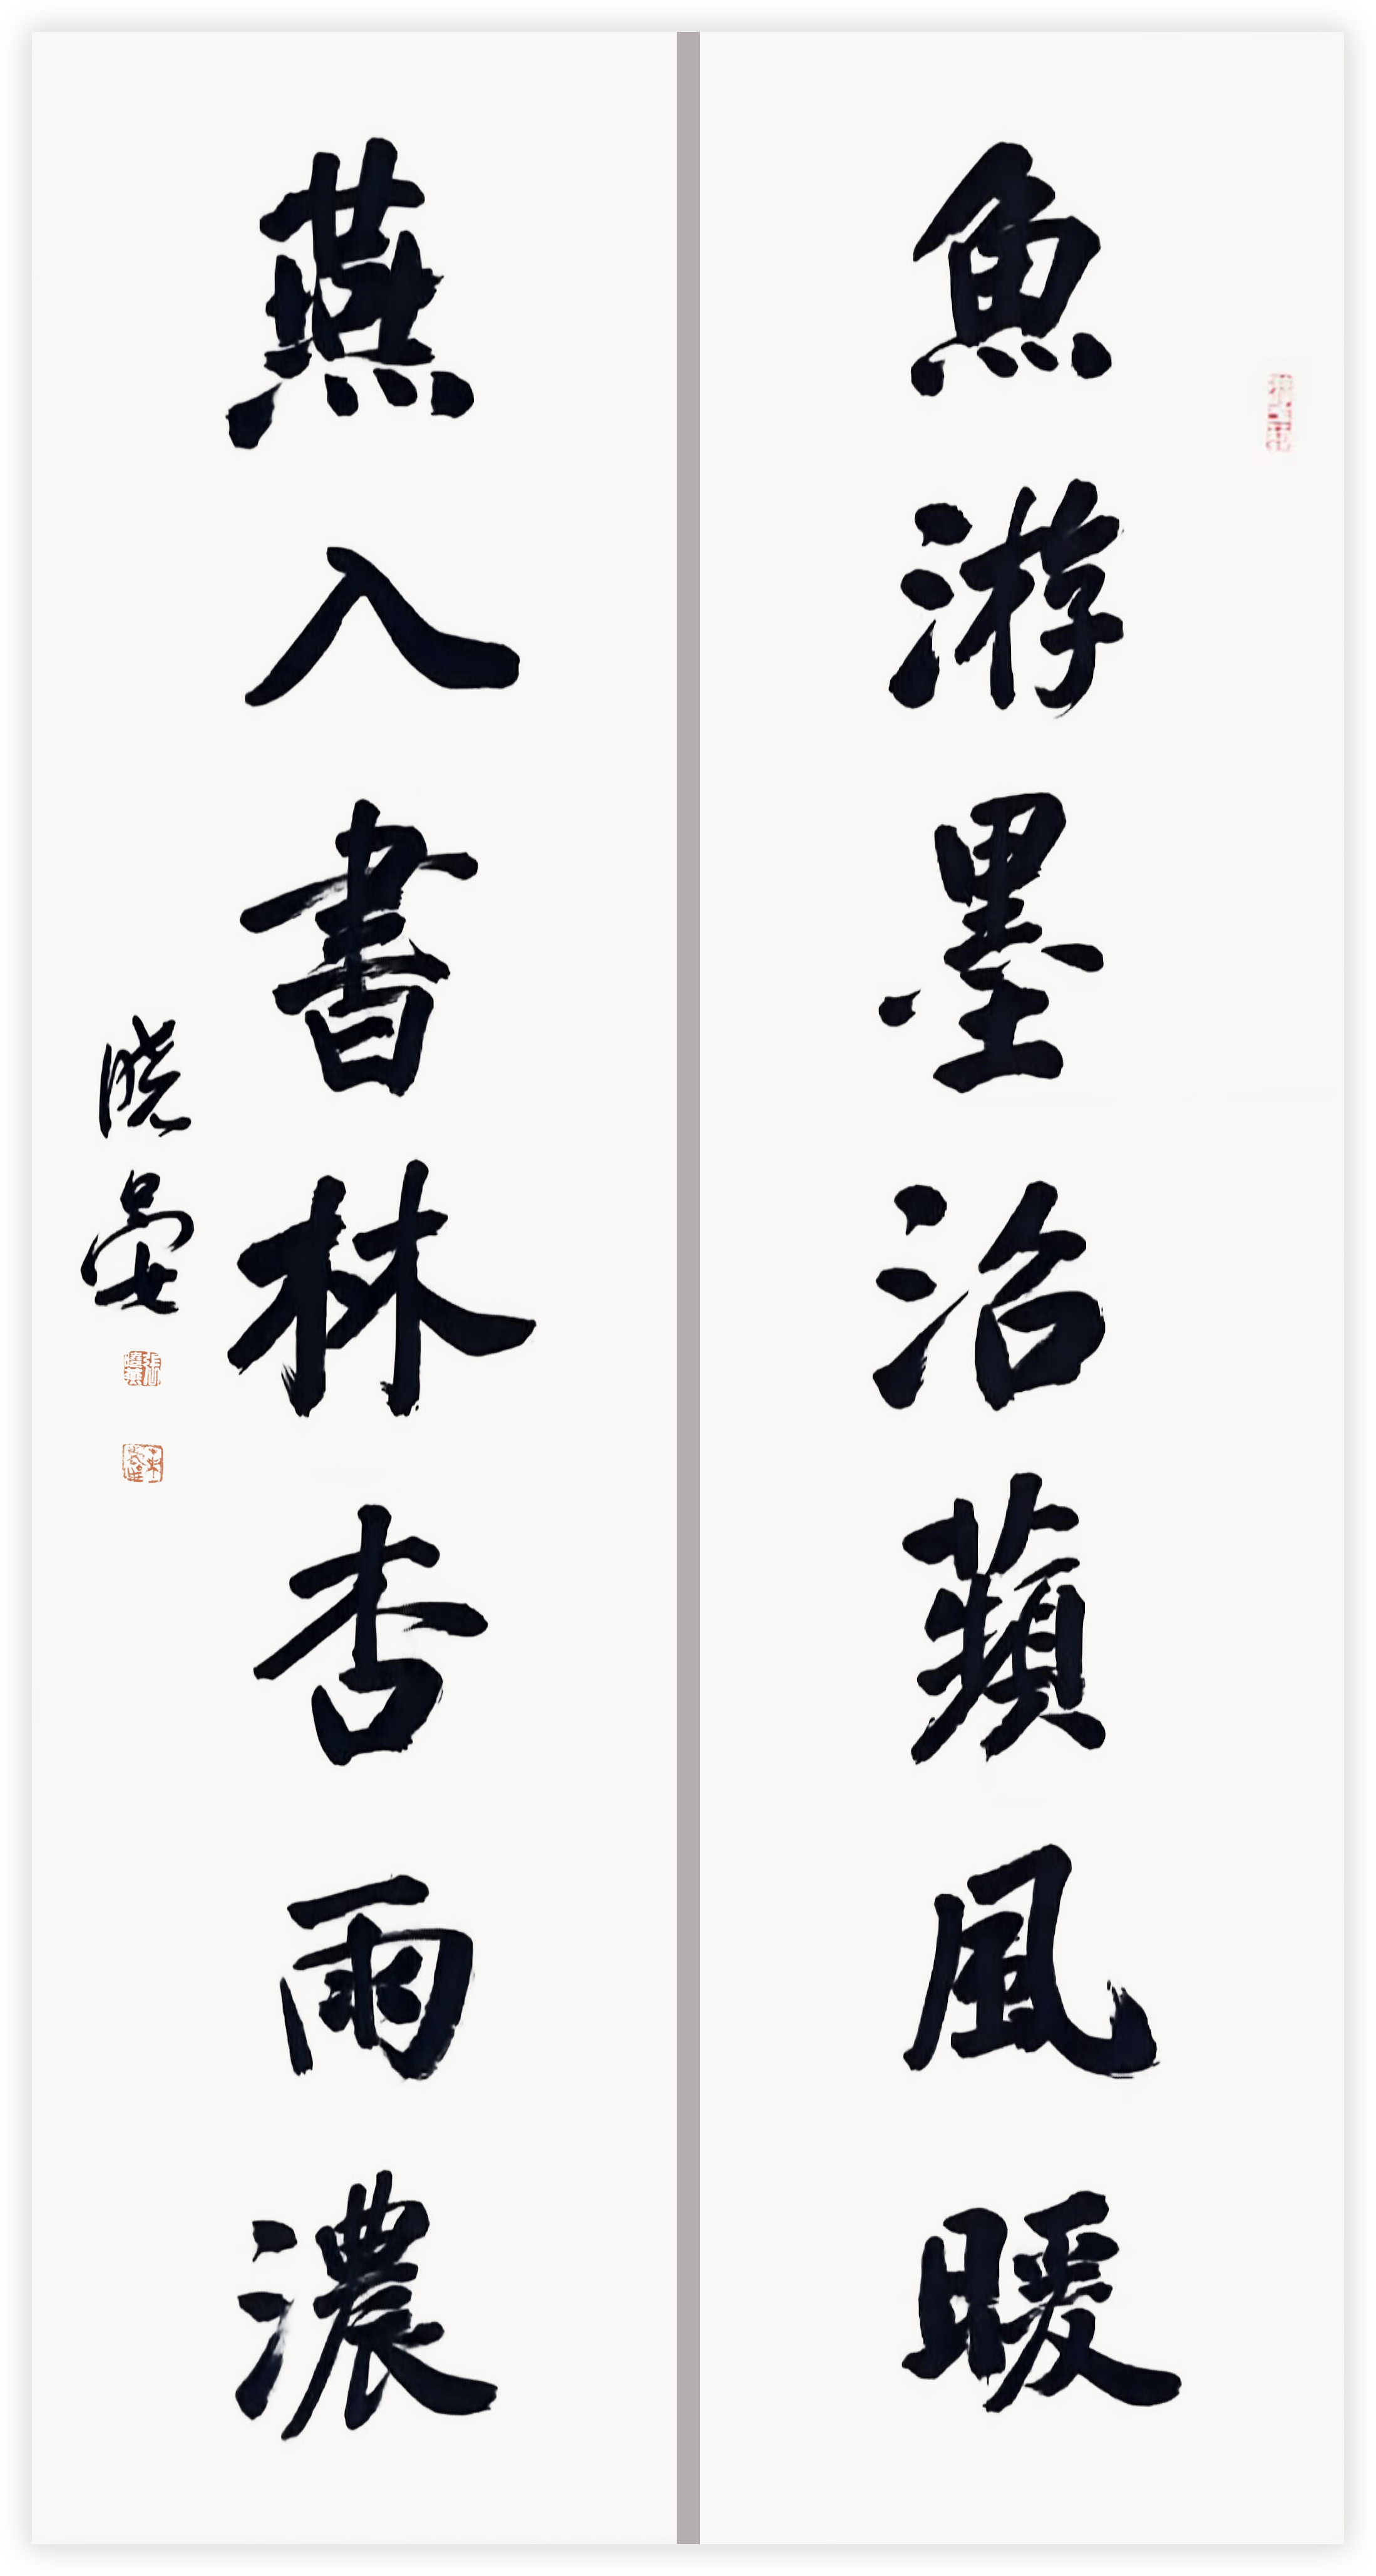 魚游墨治蘋風暖
燕入書林杏雨濃
晓晏